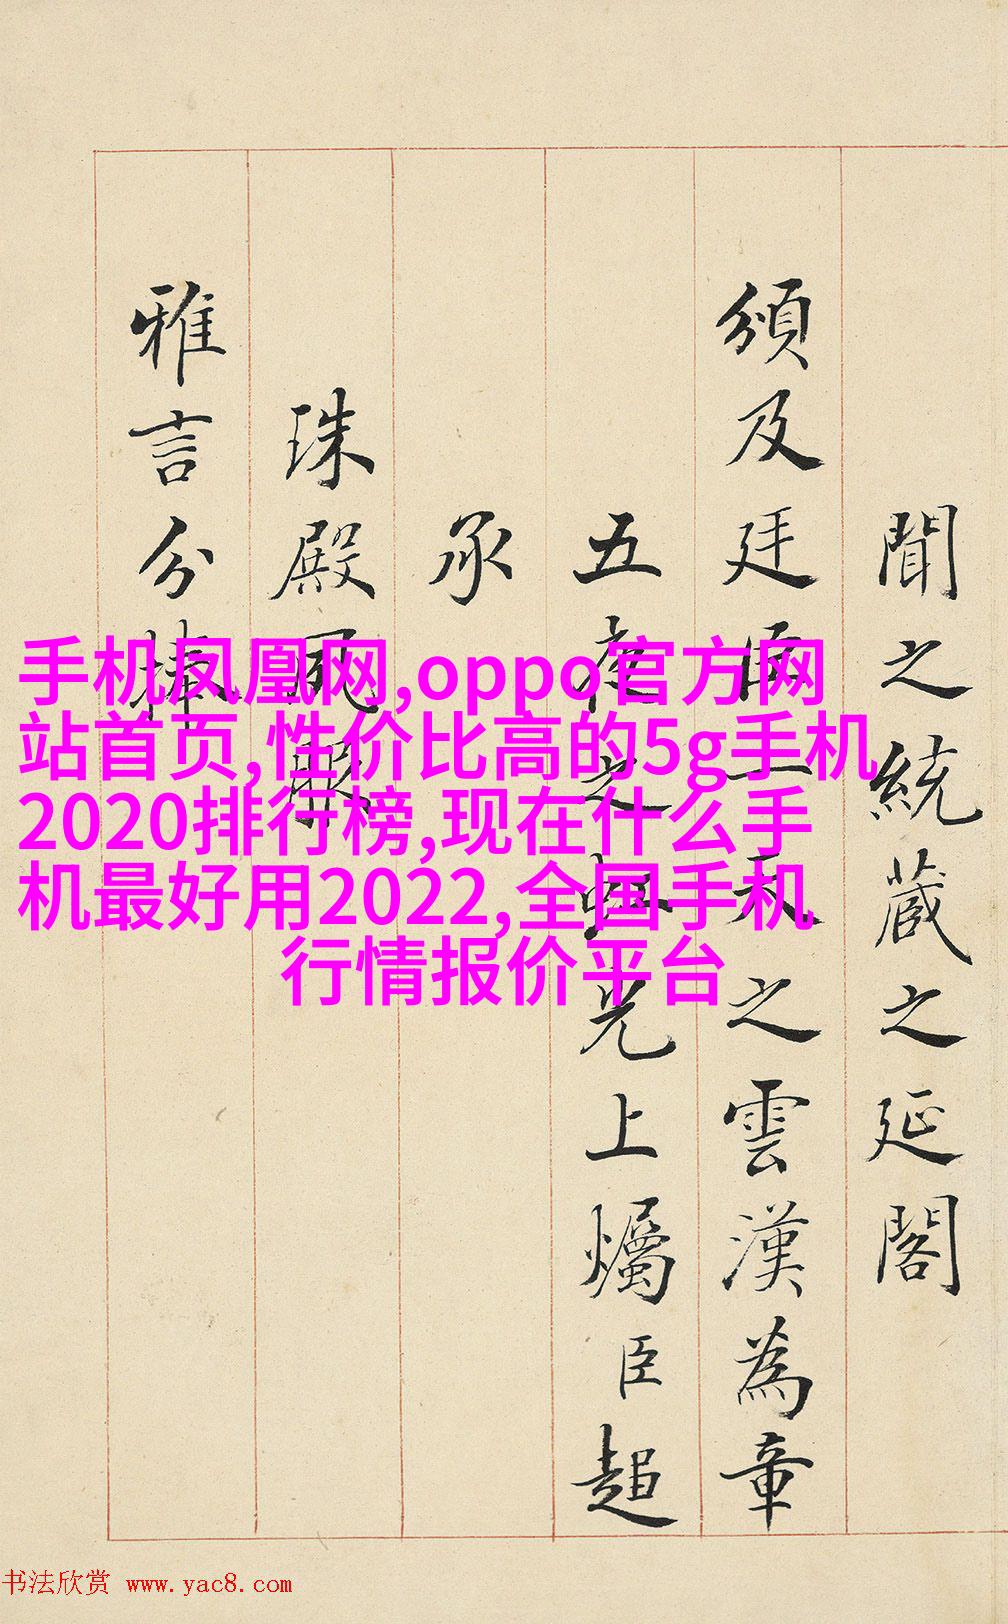 手机凤凰网,oppo官方网
站首页,性价比高的5g手机
2020排行榜,现在什么手
机最好用2022,全国手机
行情报价平台
聞之統蔵之延閣
頒及廷一天之雲漢為章
五夜之虹光上爥臣超
承
珠殿
雅言分捧
书法欣赏 www.yac8.com